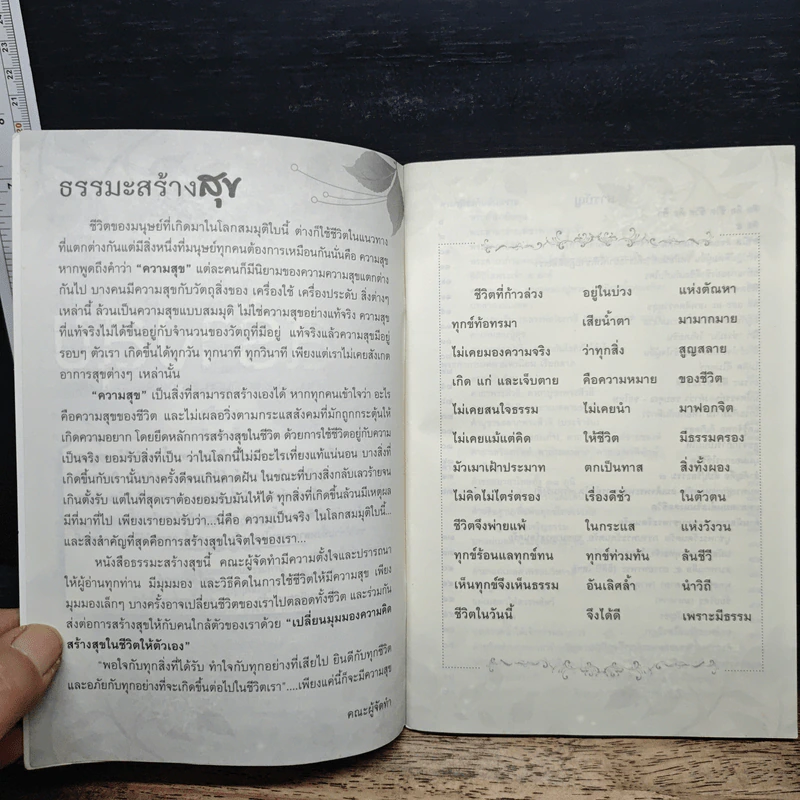 ธรรมะสร้างสุข
ชีวิตของมนุษย์ที่เกิดมาในโลกสมมุติใบนี้ ต่างก็ใช้ชีวิตในแนวทาง
ที่แตกต่างกันแต่มีสิ่งหนึ่งที่มนุษย์ทุกคนต้องการเหมือนกันนั่นคือ ความสุข
หากพูดถึงคำว่า "ความสุข" แต่ละคนก็มีนิยามของความความสุขแตกต่าง
กันไป บางคนมีความสุขกับวัตถุสิ่งของ เครื่องใช้ เครื่องประดับ สิ่งต่างๆ
เหล่านี้ ล้วนเป็นความสุขแบบสมมุติ ไม่ใช่ความสุขอย่างแท้จริง ความสุข
ที่แท้จริงไม่ได้ขึ้นอยู่กับจำนวนของวัตถุที่มีอยู่ แท้จริงแล้วความสุขมีอยู่
รอบๆ ตัวเรา เกิดขึ้นได้ทุกวัน ทุกนาที ทุกวินาที เพียงแต่เราไม่เคยสังเกต
อาการสุขต่างๆ เหล่านั้น
"ความสุข" เป็นสิ่งที่สามารถสร้างเองได้ หากทุกคนเข้าใจว่า อะไร
คือความสุขของชีวิต และไม่เผลอวิ่งตามกระแสสังคมที่มักถูกกระตุ้นให้
เกิดความอยาก โดยยึดหลักการสร้างสุขในชีวิต ด้วยการใช้ชีวิตอยู่กับความ
เป็นจริง ยอมรับสิ่งที่เป็น ว่าในโลกนี้ไม่มีอะไรเที่ยงแท้แน่นอน บางสิ่งที่
เกิดขึ้นกับเรานั้นบางครั้งดีจนเกินคาดฝัน ในขณะที่บางสิ่งกลับเลวร้ายจน
เกินตั้งรับ แต่ในที่สุดเราต้องยอมรับมันให้ได้ ทุกสิ่งที่เกิดขึ้นล้วนมีเหตุผล
มีที่มาที่ไป เพียงเรายอมรับว่า...นี่คือ ความเป็นจริง ในโลกสมมุติใบนี้...
และสิ่งสำคัญที่สุดคือการสร้างสุขในจิตใจของเรา...
หนังสือธรรมะสร้างสุขนี้ คณะผู้จัดทำมีความตั้งใจและปรารถนา
ให้ผู้อ่านทุกท่าน มีมุมมอง และวิธีคิดในการใช้ชีวิตให้มีความสุข เพียง
มุมมองเล็กๆ บางครั้งอาจเปลี่ยนชีวิตของเราไปตลอดทั้งชีวิต และร่วมกัน
ส่งต่อการสร้างสุขให้กับคนใกล้ตัวของเราด้วย "เปลี่ยนมุมมองความคิด
สร้างสุขในชีวิตให้ตัวเอง"
"พอใจกับทุกสิ่งที่ได้รับ ทำใจกับทุกอย่างที่เสียไป ยินดีกับทุกชีวิต
และอภัยกับทุกอย่างที่จะเกิดขึ้นต่อไปในชีวิตเรา"....เพียงแค่นี้ก็จะมีความสุข
คณะผู้จัดทำ
ชีวิตที่ก้าวล่วง อยู่ในบ่วง แห่งตัณหา
ทุกข์ท้อทรมา เสียน้ำตา มามากมาย
ไม่เคยมองความจริง ว่าทุกสิ่ง สูญสลาย
เกิด แก่ และเจ็บตาย คือความหมาย ของชีวิต
ไม่เคยสนใจธรรม ไม่เคยนำ มาฟอกจิต
ไม่เคยแม้แต่คิด ให้ชีวิต มีธรรมครอง
มัวเมาเฝ้าประมาท ตกเป็นทาส สิ่งทั้งผอง
ไม่คิดไม่ไตร่ตรอง เรื่องดีชั่ว ในตัวตน
ชีวิตจึงพ่ายแพ้ ในกระแส แห่งวังวน
ทุกข์ร้อนแลทุกข์ทน ทุกข์ท่วมท้น ล้นชีวี
เห็นทุกข์จึงเห็นธรรม อันเลิศล้ำ นำวิถี
ชีวิตในวันนี้ จึงได้ดี เพราะมีธรรม